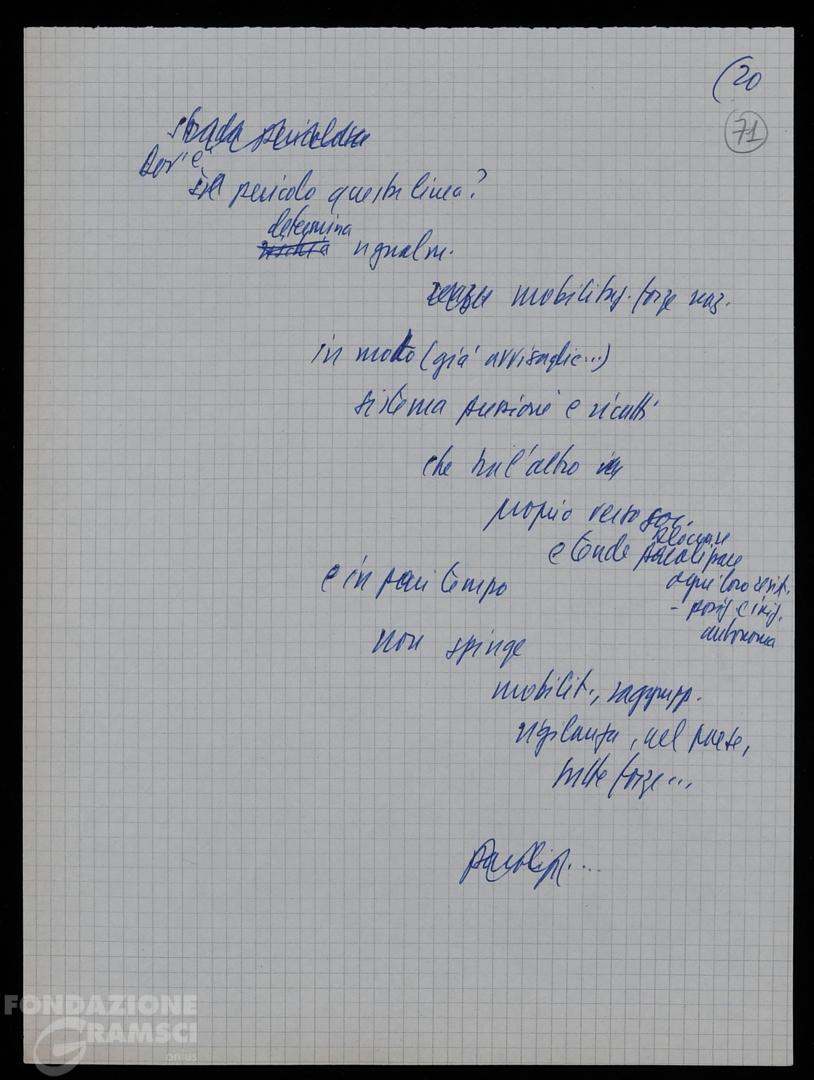 (20
71
strada pericolosa
Dov'è
il pericolo questa linea?
determina
rischia ugualm.
mobilitaz. forze reaz.
in moto (già avvisaglie...)
sistema pressioni e ricatti
che tra l'altro
proprio verso soc.
bloccare
e tende paralizzare
ogni loro
e in pari tempo
- posiz. e iniz.
autonoma
non spinge
mobilit., raggrupp.
vigilanza, nel paese,
tutte forze...
FONDAZIONE
GRAMSCI
onlus